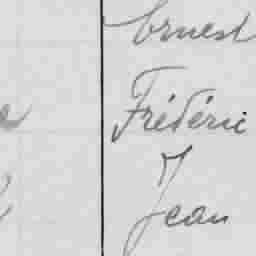 Ernest
Frédéric
Jean